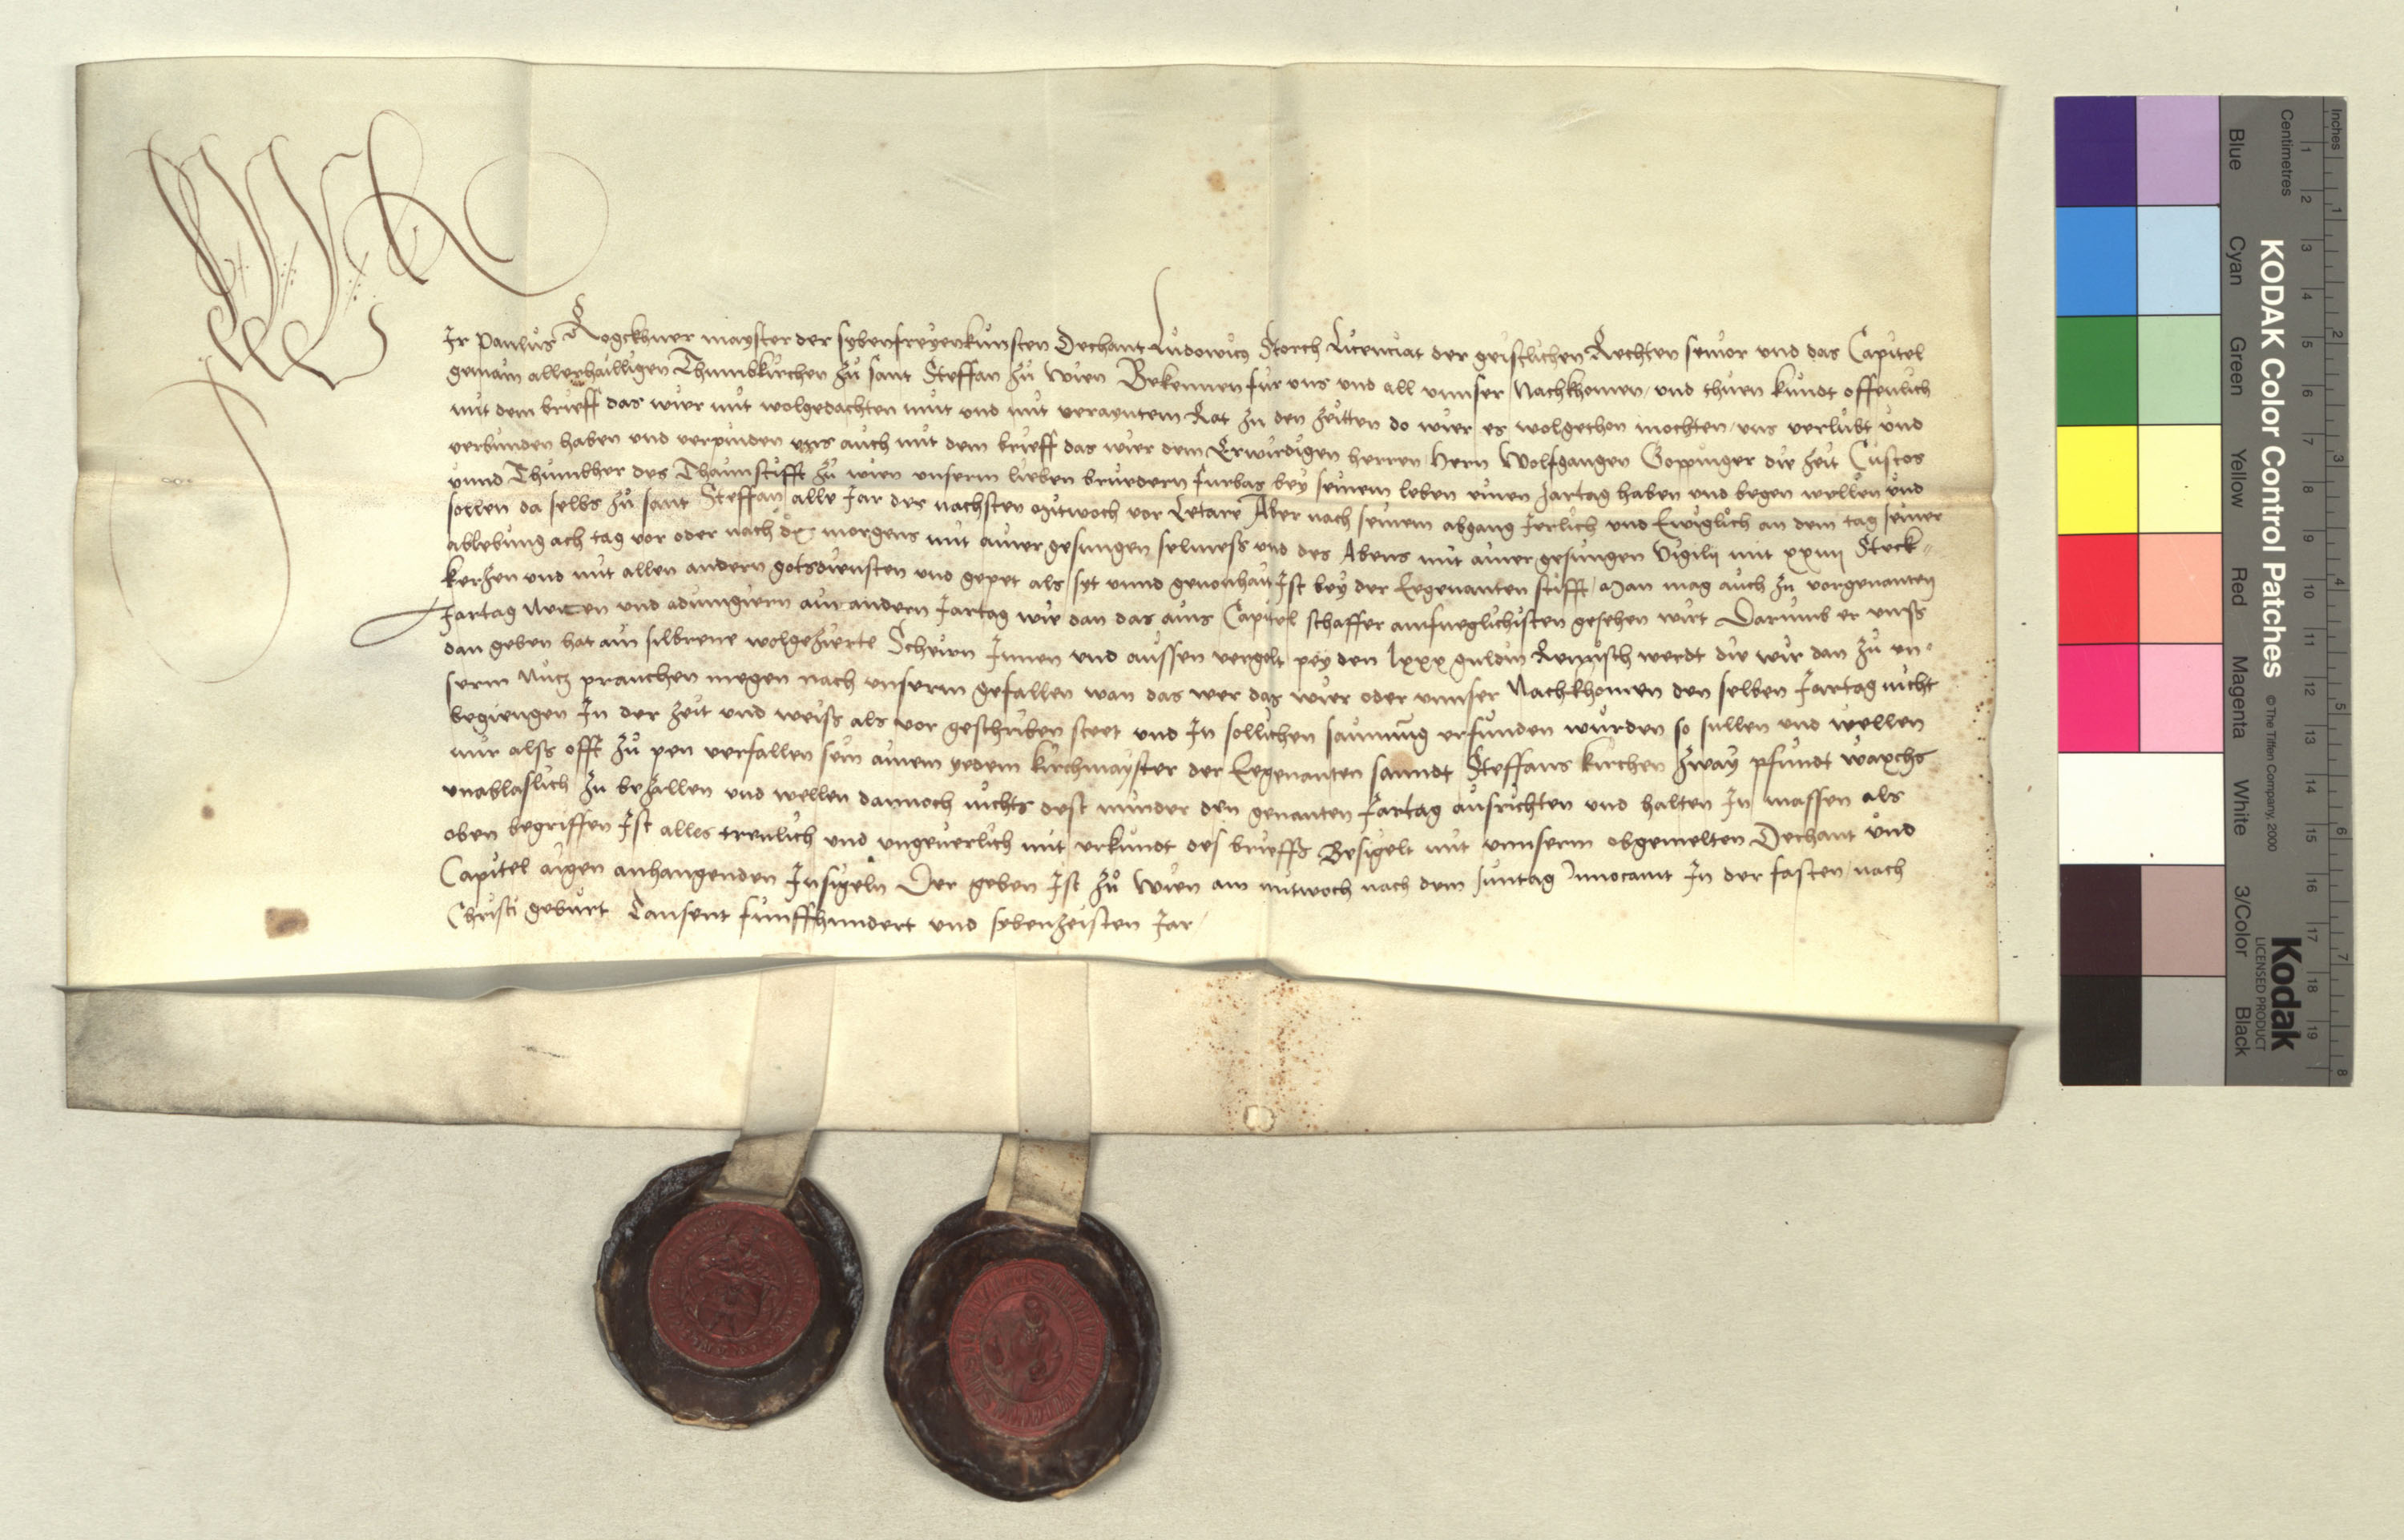 Wir Paulus Rogckhner mayster der sybenfreyenkunsten Dechant Ludowicg Storch Licenciat der geistlichen Rechten senior und das Capitel
gemain allerhailligen Thumbkirchen zů sant Steffan zů Wien Bekennen fur uns und all unnser Nachkhomen und thuen kundt offenlich
mit dem brieff das wier mit wolgedachten mut und mit veraynten Rat zu den zeitten do wier es wolgethon mochten uns verlubt und
verbunden haben und verpinden uns auch mit dem brieff das wier dem Erwirdigen herren Hern Wolfgangen Goppinger die zeit Custos
unnd Thumbher des Thaumstifft zů wien unserm lieben bruedern furbas bey seinem leben einen Jartag haben und begen wellen und
sollen da selbs zů sant Steffan alle Jar des nachsten mitwoch vor Letare Aber nach seinem abgang Jerlich und Ewiglich an dem tag seiner
ablebung ach tag vor oder nach morgens mit ainer gesungen selmess und des Abens mit ainer gesungen Vigilij mit xxiiij Steck=
kerzen und mit allen andern gotsdiensten und gepet als syt unnd gewonhait Ist bey der Eegenanten stifft Man mag auch zu vorgenanten
Jartag und adiungiern ain andern Jartag wie dan das ains Capitel schaffer amfueglichisten gesehen wirt Darumb er unss
dan geben hat ain silbrene wolgezierte Scheirn Innen und aussen vergelt pey den lxxx guldin Reynisch werdt die wir dan zů un=
serm Nutz prauchen megen nach unserm gefallen wan das wer das wier oder unnser Nachkhomen den selben Jartag nicht
begiengen In der zeit und weiss als vor geschriben steet und In sollichen saumung erfunden wurden so sullen und wellen
wir alss offt zů pen verfallen sein ainem yedem kirchmayster der Eegenanten sanndt Steffans kirchen zway pfundt waxchs
unablaslich zu bezallen und wellen dannoch nichts dest minder den genanten Jartag ausrichten und halten In massen als
oben begriffen Ist alles treulich und ungeverlich mit urkundt des brieffs Besigelt mit unnserm obgemelten Dechant und
Capitel aigen anhangenden Insigeln Der geben Ist zů Wien am mitwoch nach dem suntag Innocavit In der fasten nach
Christi geburt Tausent funffhundert und sybenzeisten Jar
KODAK Color Control Patches © The Tiffen Company, 2000
Kodak
LICENSED PRODUCT
Inches 1 2 3 4 5 6 7 8
Centimetres 1 2 3 4 5 6 7 8 9 10 11 12 13 14 15 16 17 18 19
Blue Cyan Green Yellow Red Magenta White 3/Color Black